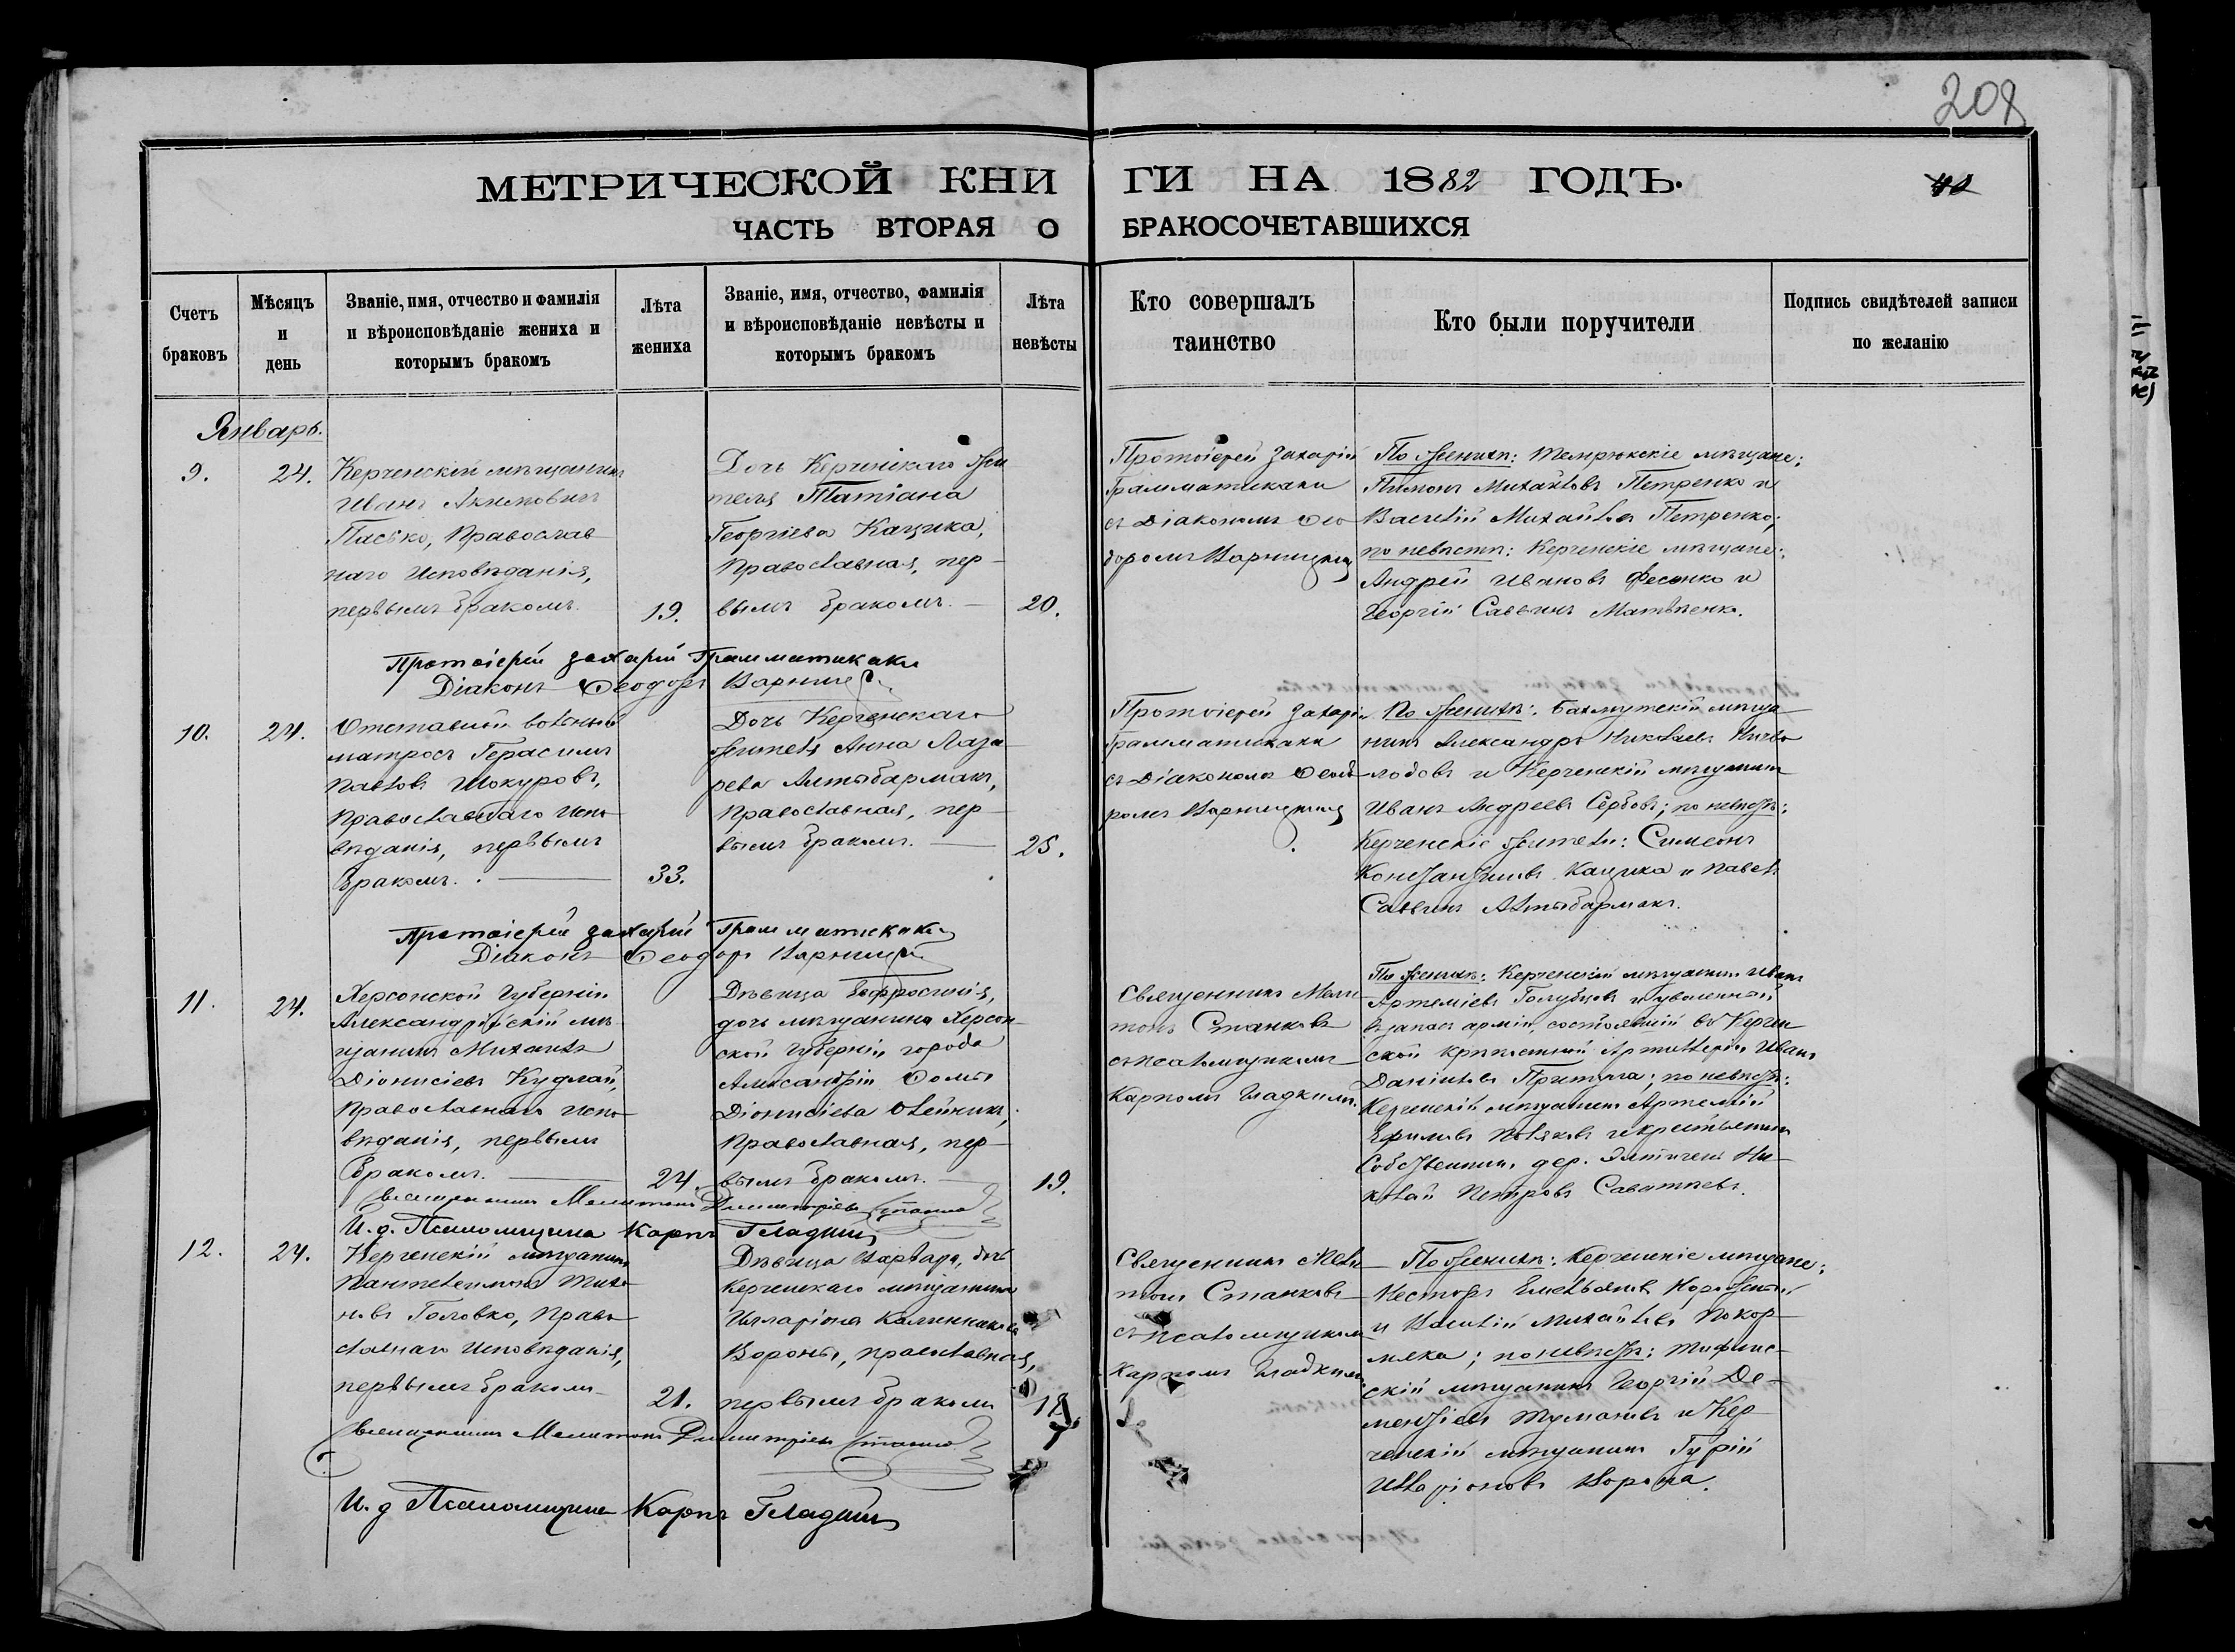 208
МЕТРИЧЕСКОЙ КНИГИ НА 1882 ГОДЪ.
ЧАСТЬ ВТОРАЯ О БРАКОСОЧЕТАВШИХСЯ
Счетъ браковъ
Мѣсяцъ и день
Званіе, имя, отчество и фамилія
и вѣроисповѣданіе жениха и
которымъ бракомъ
Лѣта жениха
Званіе, имя, отчество, фамилія
и вѣроисповѣданіе невѣсты и
которымъ бракомъ
Лѣта невѣсты
Кто совершалъ
таинство
Кто были поручители
Подпись свидѣтелей записи
по желанію
Январь.
9.
24.
Керченскій мѣщанинъ
Иванъ Акимовичъ
Пасько, Православ
наго Исповѣданія,
первымъ бракомъ.
19.
Дочь Керченскаго жи
теля Татіана
Георгіева Кацика,
Православная, пер-
вымъ бракомъ.
20.
Протоіерей Захарій
Грамматикаки
съ Діакономъ Ѳео
доромъ Варницкимъ
По женихѣ: Темрюкскіе мѣщане:
Пимонъ Михайловъ Петренко и
Василій Михайловъ Петренко;
по невѣстѣ: Керченскіе мѣщане:
Андрей Ивановъ Фесенко и
Георгій Саввинъ Матвѣенко.
Протоіерей Захарій Грамматикаки
Діаконъ Ѳеодоръ
10.
24.
Отставной военный
матросъ Герасимъ
Павловъ Шокуровъ,
Православнаго Испо
вѣданія, первымъ
бракомъ.
33.
Дочь Керченскаго
жителя Анна Лаза
рева Алтыбармакъ,
Православная, пер-
вымъ бракомъ.
25.
Протоіерей Захарій
Грамматикаки
съ Діакономъ Ѳеодо
ромъ Варницкимъ
По женихѣ: Бахмутскій мѣща
нинъ Александръ Николаевъ
и Керченскій мѣщанинъ
Иванъ Андреевъ Сербовъ; по невѣстѣ:
Керченскіе жители: Симеонъ
Константиновъ Кацика и Павелъ
Саввинъ Алтыбармакъ.
Протоіерей Захарій Грамматикаки
Діаконъ Ѳеодоръ
11.
24.
Херсонской Губерніи
Александрійскій мѣ
щанинъ Михаилъ
Діонисіевъ Кудлай,
Православнаго Испо
вѣданія, первымъ
бракомъ.
24.
Дѣвица Евфросинія,
дочь мѣщанина Херсон
ской Губерніи города
Александріи Ѳомы
Діонисіева Олейника,
Православная, пер-
вымъ бракомъ.
19.
Священникъ Мели
тонъ Станковъ
съ псаломщикомъ
Карпомъ Гладкимъ.
По женихѣ: Керченскій мѣщанинъ Иванъ
Артеміевъ Голубцовъ и уволенный
въ запасъ арміи, состоявшій въ Керчен
ской крѣпостной Артиллеріи Иванъ
Даніиловъ Притула; по невѣстѣ:
Керченскій мѣщанинъ Артемій
Ефимовъ Поляковъ и крестьянинъ
Собственникъ дер. Элтигенъ Ни-
колай Петровъ Саватѣевъ.
Священникъ Мелитонъ Димитріевъ Станковъ
И. д. Псаломщика Карпъ Гладкій
12.
24.
Керченскій мѣщанинъ
Пантелеимонъ Тихо
новъ Головко, Право
славнаго Исповѣданія,
первымъ бракомъ
21.
Дѣвица Варвара, дочь
Керченскаго мѣщанина
Илларіона Калинникова
Вороны, православная,
первымъ бракомъ
18
Священникъ Мели
тонъ Станковъ
съ псаломщикомъ
Карпомъ Гладкимъ
По женихѣ: Керченскіе мѣщане:
Несторъ Емельяновъ
и Василій Михайловъ Покор-
мяка; по невѣстѣ: Тифлис-
скій мѣщанинъ Георгій Де-
ментіевъ Тумановъ и Кер-
ченскій мѣщанинъ Гурій
Илларіоновъ Ворона.
Священникъ Мелитонъ Димитріевъ Станковъ
И. д. Псаломщика Карпъ Гладкій